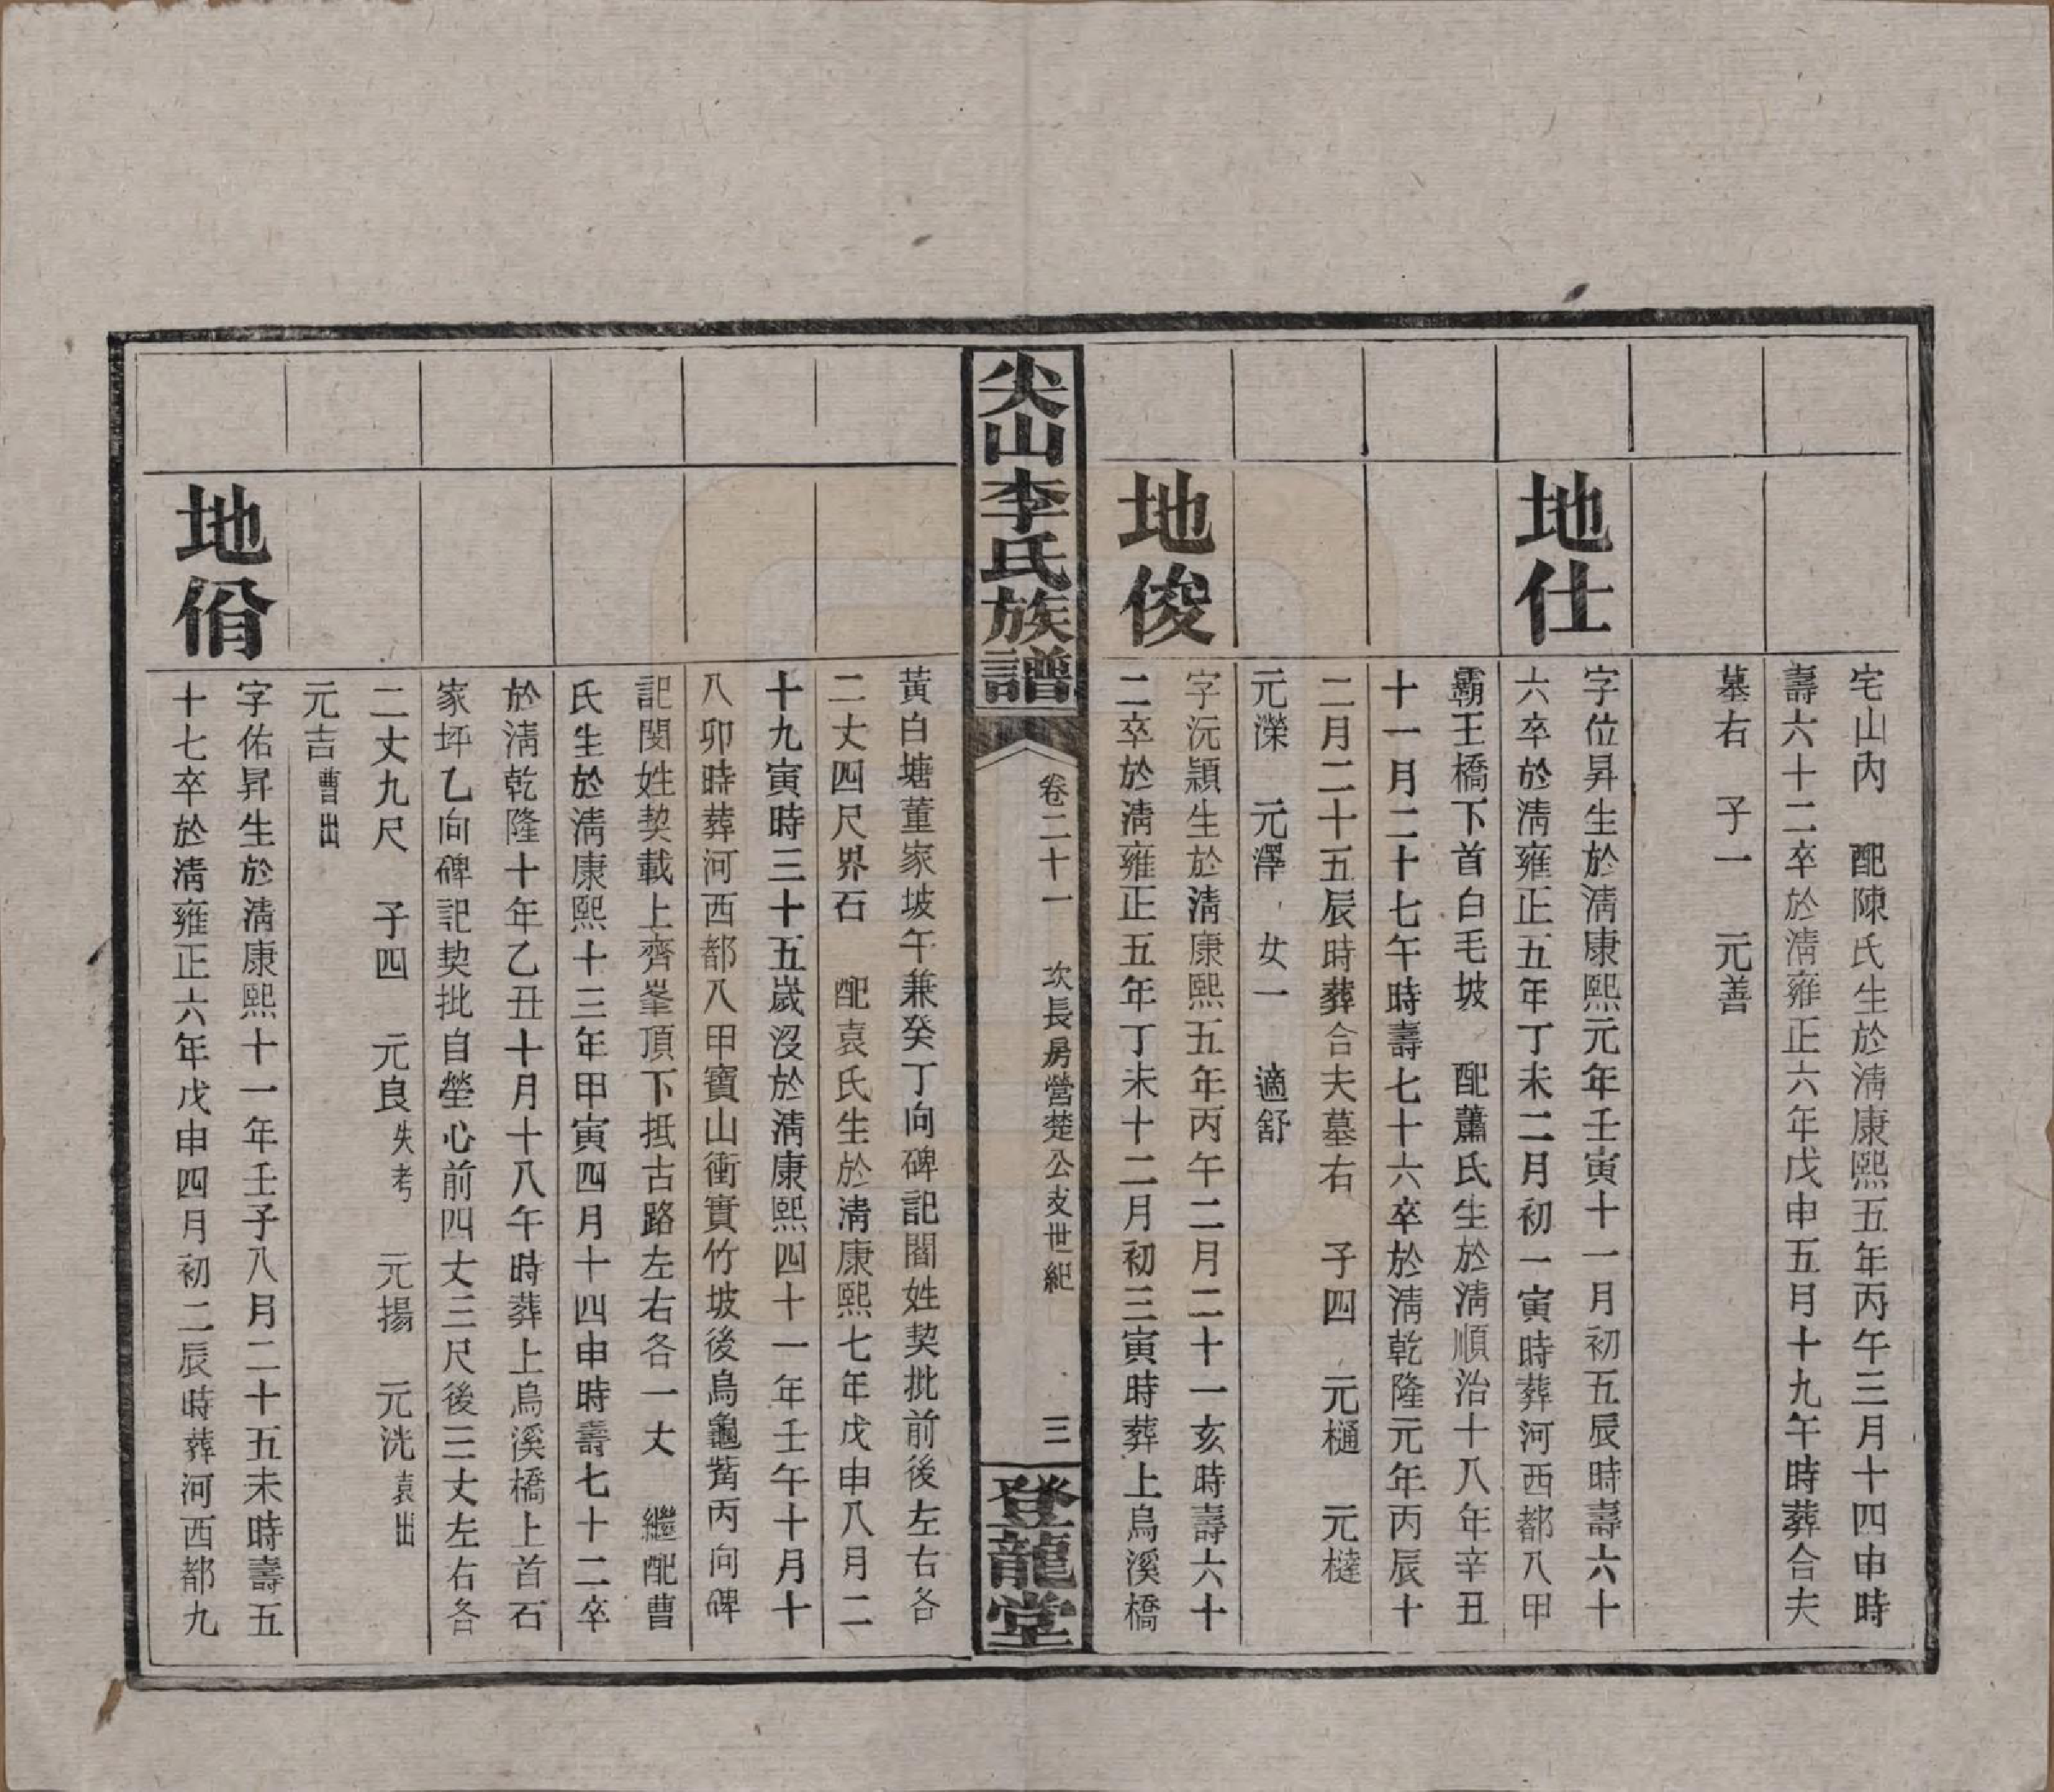 宅山内　配陳氏生於淸康熙五年丙午三月十四申時
壽六十二卒於淸雍正六年戊申五月十九午時葬合夫
墓右　子一　元善
地仕
字位昇生於淸康熙元年壬寅十一月初五辰時壽六十
六卒於淸雍正五年丁未二月初一寅時葬河西都八甲
霸王橋下首白毛坡　配蕭氏生於淸順治十八年辛丑
十一月二十七午時壽七十六卒於淸乾隆元年丙辰十
二月二十五辰時葬合夫墓右　子四　元樋　元㯓
元濚　元澤　女一　適舒
地俊
字沅穎生於淸康熙五年丙午二月二十一亥時壽六十
二卒於淸雍正五年丁未十二月初三寅時葬上烏溪橋
尖山李氏族譜
卷二十一　次長房營楚公支世紀　三
登龍堂
黃白塘董家坡午兼癸丁向碑記閻姓契批前後左右各
二丈四尺界石　配袁氏生於淸康熙七年戊申八月二
十九寅時三十五嵗沒於淸康熙四十一年壬午十月十
八卯時葬河西都八甲寶山衝實竹坡後烏龜觜丙向碑
記閔姓契載上齊峯頂下抵古路左右各一丈　繼配曹
氏生於淸康熙十三年甲寅四月十四申時壽七十二卒
於淸乾隆十年乙丑十月十八午時葬上烏溪橋上首石
家坪乙向碑記契批自塋心前四丈三尺後三丈左右各
二丈九尺　子四　元良失考　元揚　元洸袁出
元吉曹出
地佾
字佑昇生於淸康熙十一年壬子八月二十五未時壽五
十七卒於淸雍正六年戊申四月初二辰時葬河西都九